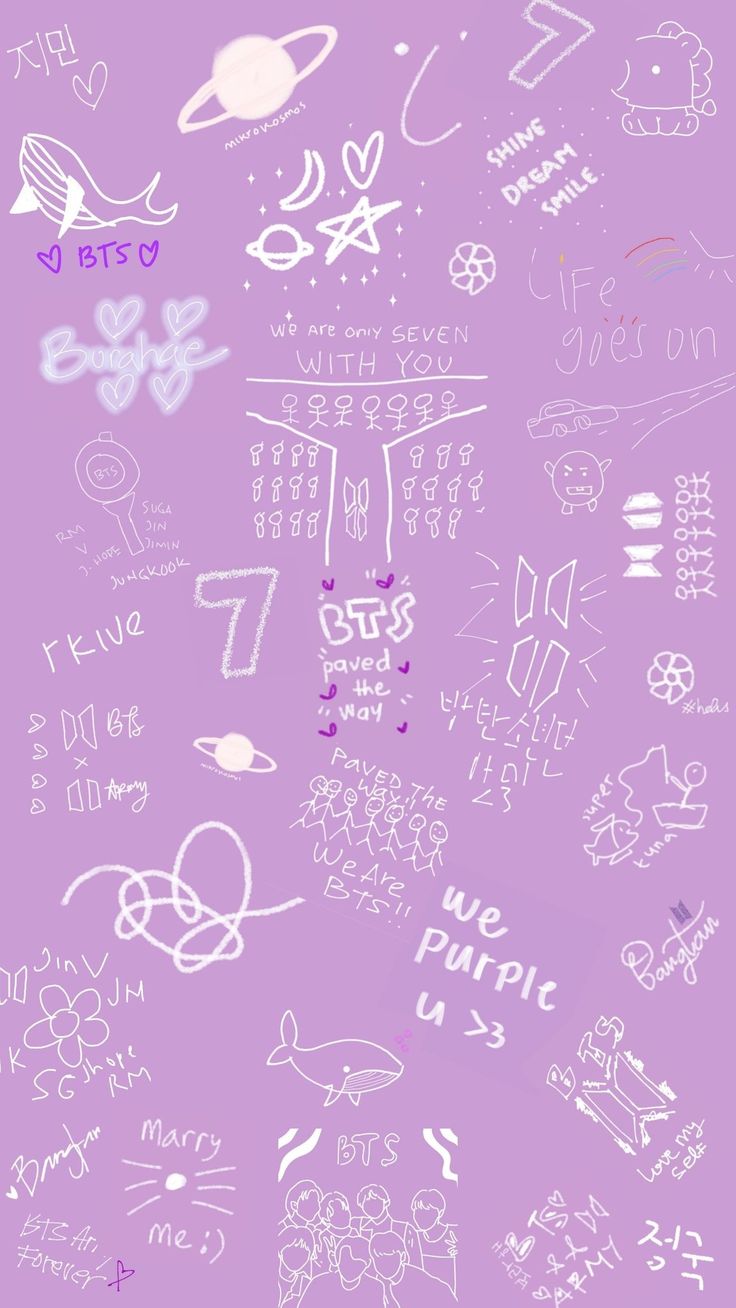 지민
mikrokosmos
7
SHINE
DREAM
SMILE
BTS
LiFe
goes on
Borahae
We are only SEVEN
WITH YOU
BTS
RM
V
J-HOPE
SUGA
JIN
JIMIN
JUNGKOOK
7
rkive
BTS
paved
the
way
방탄소년단
아미
<3
BTS
x
Army
mikrokosmos
PAVED THE
WAY!!
We Are
BTS!!
super
tuna
we
purple
u >3
Bangtan
Jin V
JM
K
SG
Jhope
RM
BTS
Love my
self
Bangtan
Marry
me :)
BTS
BTS
Forever
BTS
&
ARMY
정국